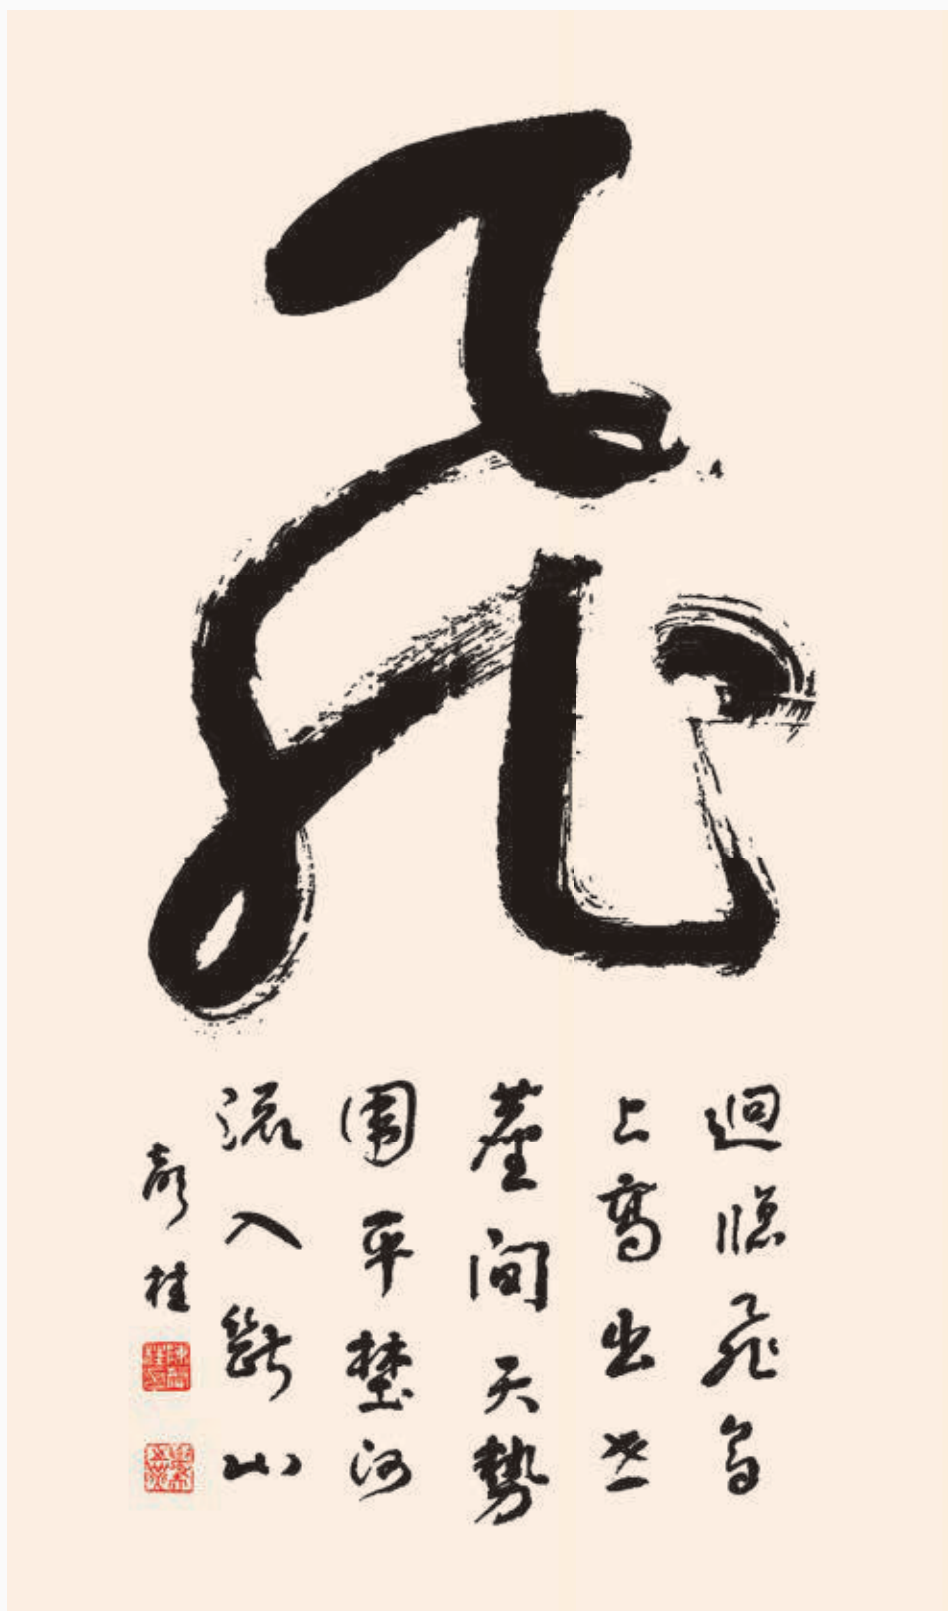 飛
逈臨飛鳥
上高出世
塵間天勢
圍平埜河
流入斷山
桂